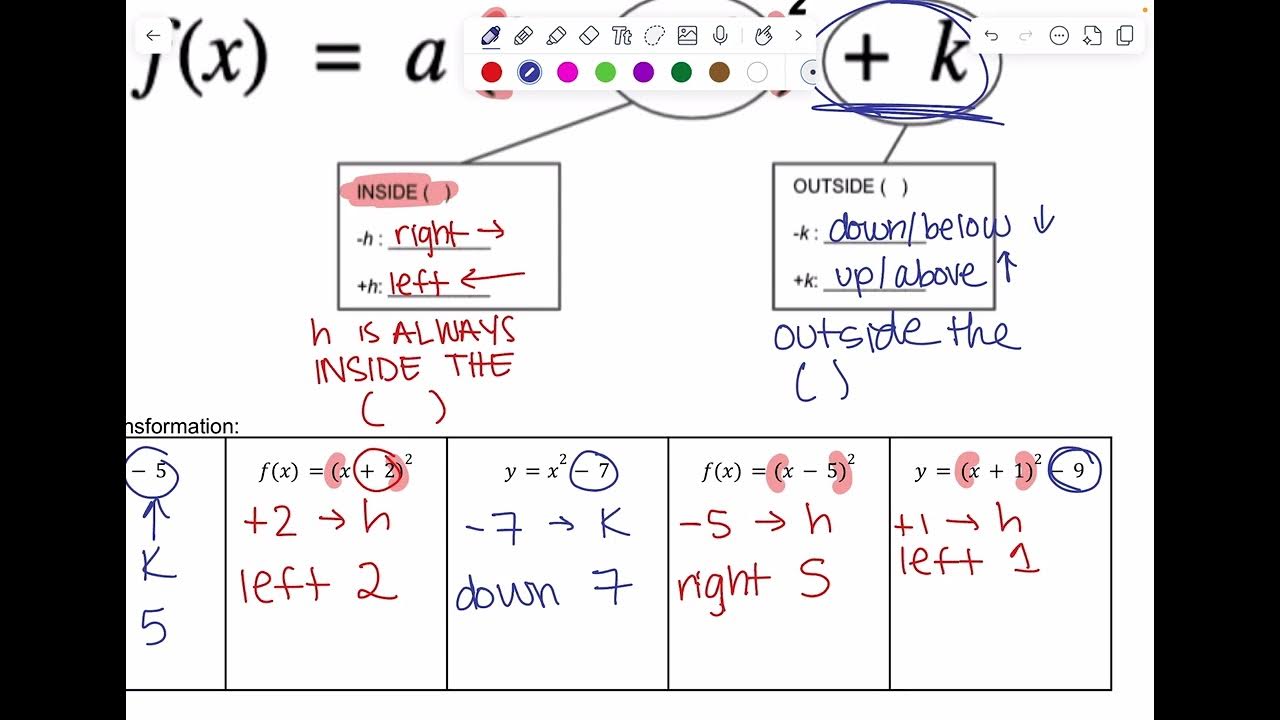 f(x) = a
2
+ k
Tt
INSIDE ( )
-h : right →
+h: left ←
h IS ALWAYS
INSIDE THE
( )
OUTSIDE ( )
-k : down/below ↓
+k: up/above ↑
outside the
( )
nsformation:
− 5
↑
K
5
f(x) = (x + 2)²
+2 → h
left 2
y = x² − 7
-7 → K
down 7
f(x) = (x − 5)²
-5 → h
right 5
y = (x + 1)² − 9
+1 → h
left 1